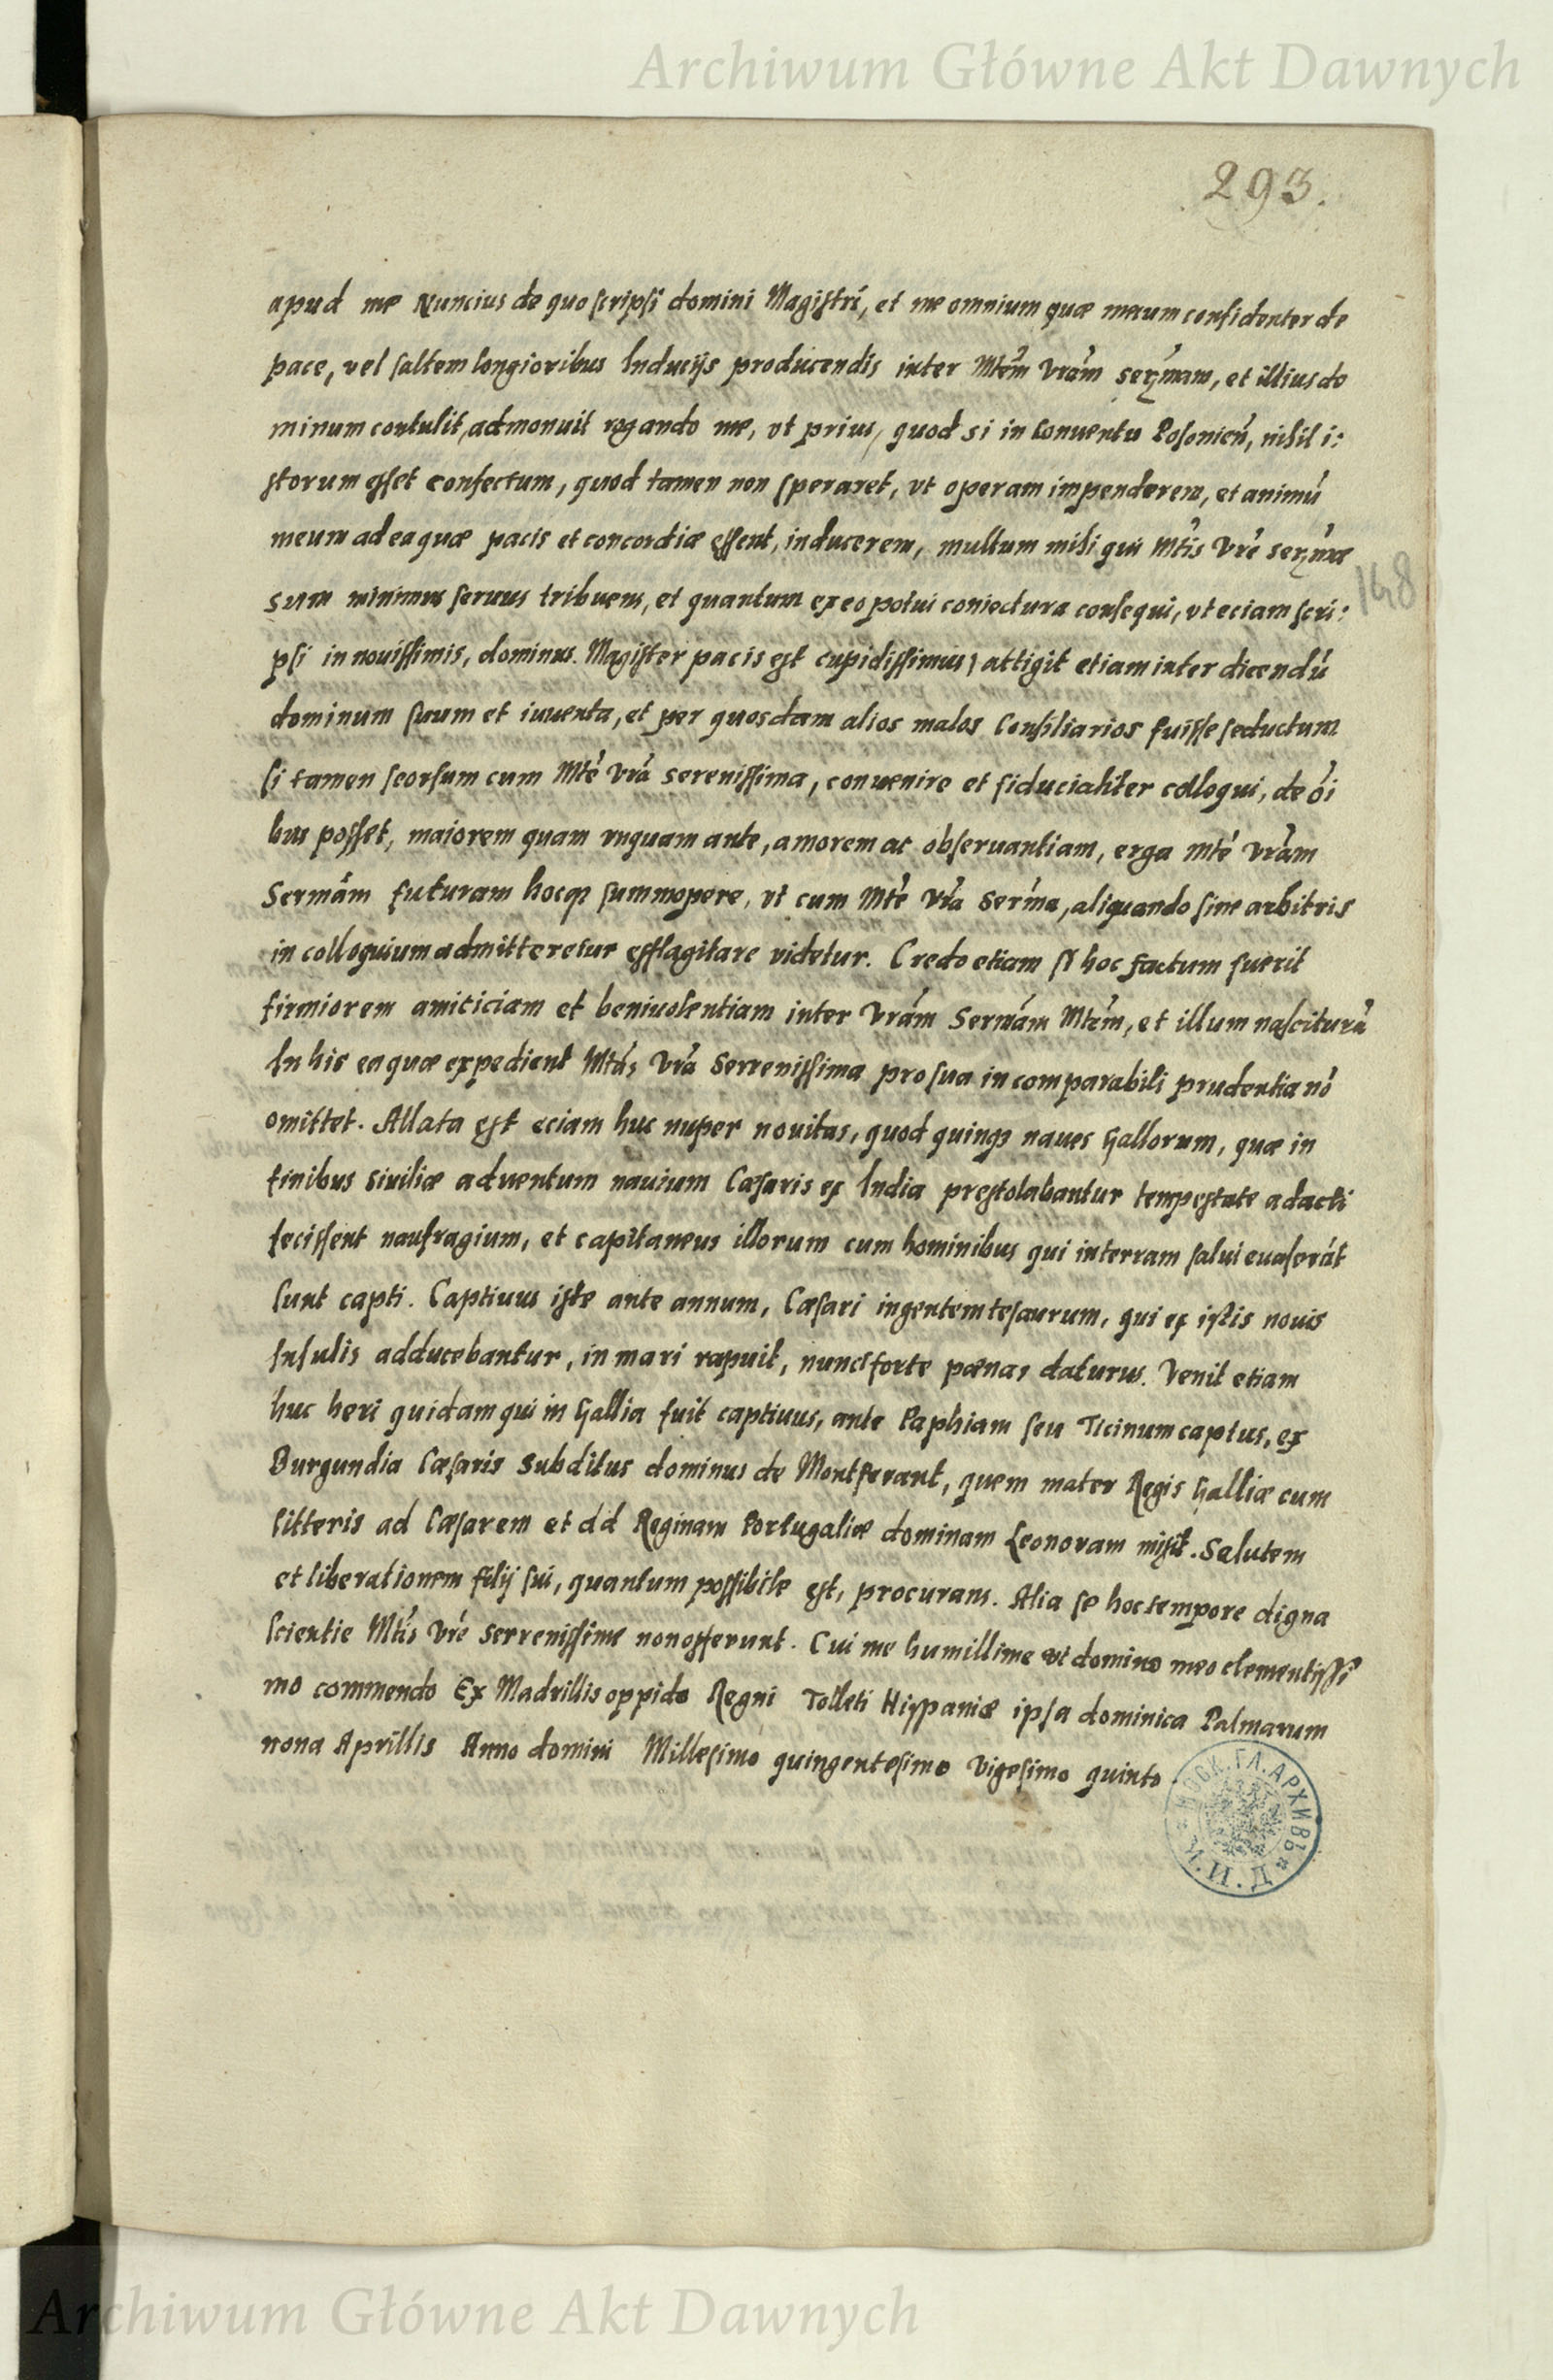 Archiwum Główne Akt Dawnych
293.
apud me Nuncius de quo scripsi domini Magistri, et me omnium quæ mecum confidenter de
pace, vel saltem longioribus Inducijs producendis inter Mtem Vram serzmam, et illius do
minum contulit, admonuit rogando me, vt prius, quod si in Conuentu Posonien, nihil i:
storum esset confectum, quod tamen non speraret, vt operam impenderem, et animú
meum ad ea quæ pacis et concordiæ essent, inducerem, multum mihi qui Mtis Vre serzmæ
148
sum minimus seruus tribuens, et quantum ex eo potui coniectura consequi, vt eciam scri:
psi in nouissimis, dominus Magister pacis est cupidissimus, attigit etiam inter dicendú
dominum suum et iuuenta, et per quosdam alios malos Consiliarios fuisse seductum
si tamen seorsum cum Mte Vra serenissima, conuenire et fiducialiter colloqui, de oi
bus posset, maiorem quam vnquam ante, amorem ac obseruantiam, erga mte vram
Sermam futuram hocq summopere, vt cum Mte Vra Serma, aliquando sine arbitris
in colloquium admitteretur efflagitare videtur. Credo etiam si hoc factum fuerit
firmiorem amiciciam et beniuolentiam inter Vram Sermam Mtem, et illum nasciturú
In his ea quæ expedient Mtas Vra Serrenissima pro sua incomparabili prudentia nó
omittet. Allata est eciam huc nuper nouitas, quod quinq naues Gallorum, quæ in
finibus Siuiliæ aduentum nauium Cæsaris ex India prestolabantur tempestate adacti
fecissent naufragium, et capitaneus illorum cum hominibus qui in terram salui euaserát
sunt capti. Captiuus iste ante annum, Cæsari ingentem tesaurum, qui ex istis nouis
Insulis adducebantur, in mari rapuit, nunc forte pœnas daturus. Venit etiam
huc heri quidam qui in Gallia fuit captiuus, ante Paphiam seu Ticinum captus, ex
Burgundia Cæsaris subditus dominus de Montferant, quem mater Regis Galliæ cum
litteris ad Cæsarem et dd Reginam Portugaliæ dominam Leonoram misit. Salutem
et liberationem filij sui, quantum possibile est, procurans. Alia se hoc tempore digna
scientie Mtis Vre Serrenissime non offerunt. Cui me humillime vt domino meo clementissi
mo commendo Ex Madrillis oppido Regni Tolleti Hispaniæ ipsa dominica Palmarum
nona Aprillis Anno domini Millesimo quingentesimo Vigesimo quinto
МОСК.ГЛ.АРХИВЪ
М.И.Д.
Archiwum Główne Akt Dawnych